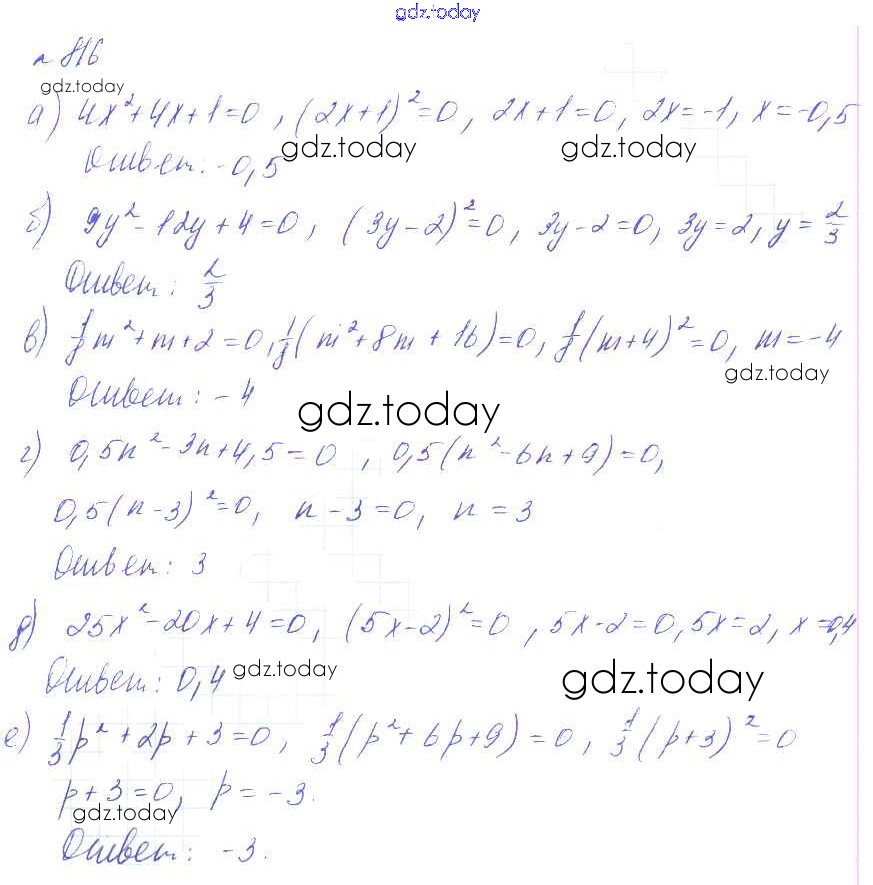 gdz.today
n 816
gdz.today
а) 4x²+4x+1=0, (2x+1)²=0, 2x+1=0, 2x=-1, x=-0,5
Ответ: -0,5 gdz.today gdz.today
б) 9y²-12y+4=0, (3y-2)²=0, 3y-2=0, 3y=2, y=2/3
Ответ: 2/3
в) 1/8m²+m+2=0, 1/8(m²+8m+16)=0, 1/8(m+4)²=0, m=-4
gdz.today
Ответ: -4
gdz.today
г) 0,5n²-3n+4,5=0, 0,5(n²-6n+9)=0,
0,5(n-3)²=0, n-3=0, n=3
Ответ: 3
д) 25x²-20x+4=0, (5x-2)²=0, 5x-2=0, 5x=2, x=0,4
Ответ: 0,4 gdz.today gdz.today
е) 1/3p²+2p+3=0, 1/3(p²+6p+9)=0, 1/3(p+3)²=0
p+3=0, p=-3.
gdz.today
Ответ: -3.